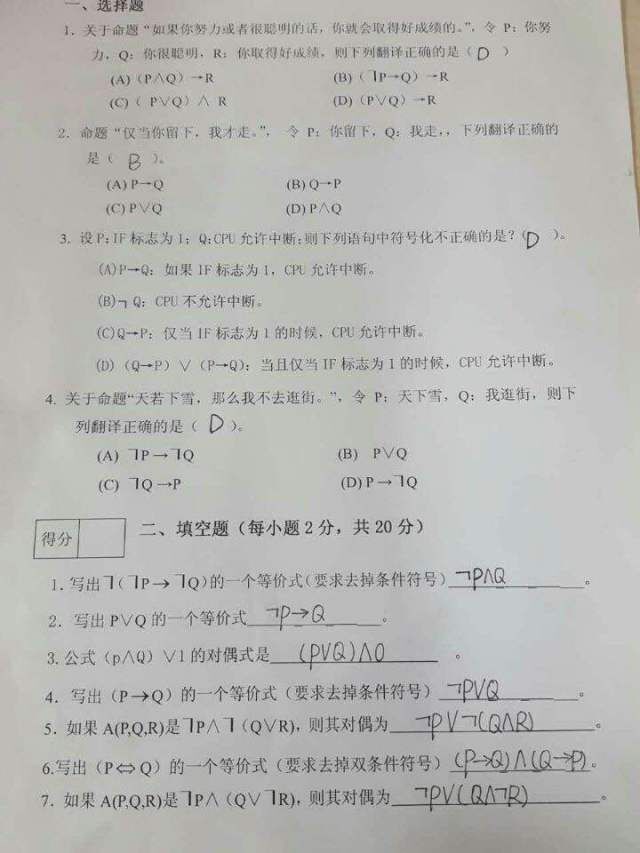 一、选择题
1. 关于命题“如果你努力或者很聪明的话，你就会取得好成绩的。”，令 P：你努
力，Q：你很聪明，R：你取得好成绩，则下列翻译正确的是（ D ）
(A)（P∧Q）→R (B)（˥P→Q）→R
(C)（ P∨Q）∧ R (D)（P∨Q）→R
2. 命题“仅当你留下，我才走。”， 令 P：你留下，Q：我走，，下列翻译正确的
是（ B ）。
(A) P→Q (B) Q→P
(C) P∨Q (D) P∧Q
3. 设 P：IF 标志为 1；Q：CPU 允许中断；则下列语句中符号化不正确的是？（D ）。
(A)P→Q：如果 IF 标志为 1，CPU 允许中断。
(B)¬ Q：CPU 不允许中断。
(C)Q→P：仅当 IF 标志为 1 的时候，CPU 允许中断。
(D)（Q→P）∨（P→Q）：当且仅当 IF 标志为 1 的时候，CPU 允许中断。
4. 关于命题“天若下雪，那么我不去逛街。”，令 P：天下雪，Q：我逛街，则下
列翻译正确的是（ D ）。
(A) ˥P→˥Q (B) P∨Q
(C) ˥Q→P (D) P→˥Q
得分 二、填空题（每小题 2 分，共 20 分）
1. 写出˥（˥P→˥Q）的一个等价式（要求去掉条件符号）¬P∧Q。
2. 写出 P∨Q 的一个等价式 ¬P→Q。
3. 公式（p∧Q）∨1 的对偶式是 (P∨Q)∧0 。
4. 写出（P→Q）的一个等价式（要求去掉条件符号）¬P∨Q。
5. 如果 A(P,Q,R)是˥P∧˥（Q∨R），则其对偶为 ¬P∨¬(Q∧R)。
6.写出（P⇔Q）的一个等价式（要求去掉双条件符号）(P→Q)∧(Q→P)。
7. 如果 A(P,Q,R)是˥P∧（Q∨˥R），则其对偶为 ¬P∨(Q∧¬R)。